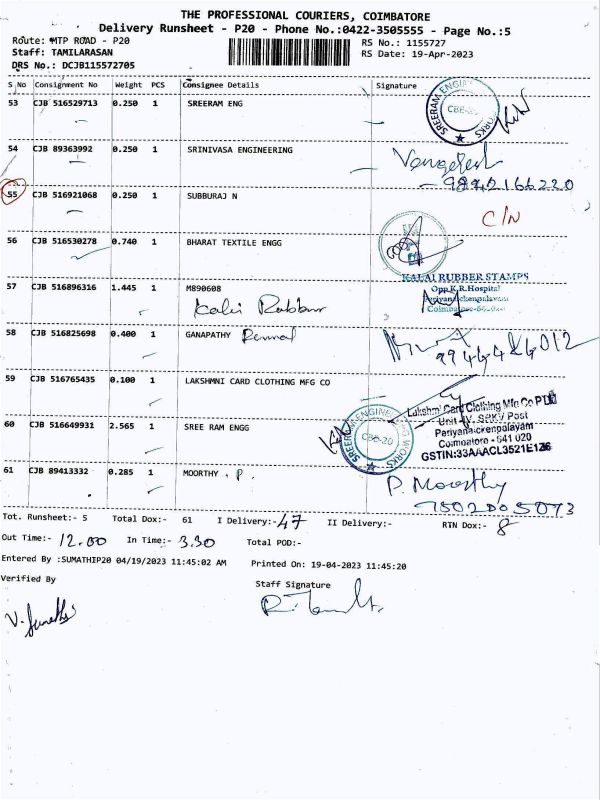 THE PROFESSIONAL COURIERS, COIMBATORE
Delivery Runsheet - P20 - Phone No.:0422-3505555 - Page No.:5
Route: MTP ROAD - P20
RS No.: 1155727
Staff: TAMILARASAN
RS Date: 19-Apr-2023
DRS No.: DCJB115572705
S No Consignment No Weight PCS Consignee Details Signature
53 CJB 516529713 0.250 1 SREERAM ENG
SREERAM ENGINEERING WORKS CBE-20
54 CJB 89363992 0.250 1 SRINIVASA ENGINEERING
Vengatesh
55 CJB 516921068 0.250 1 SUBBURAJ N
C/N
56 CJB 516530278 0.740 1 BHARAT TEXTILE ENGG
57 CJB 516896316 1.445 1 M890608
KALAI RUBBER STAMPS
Opp K.R.Hospital
Periyanaickenpalayam
Kalai Rubber
58 CJB 516825698 0.400 1 GANAPATHY
59 CJB 516765435 0.100 1 LAKSHMNI CARD CLOTHING MFG CO
Lakshmi Card Clothing Mfg Co P Ltd
Unit-IV, SRKV Post
Periyanaickenpalayam
Coimbatore - 641 020
GSTIN:33AAACL3521E1Z6
60 CJB 516649931 2.565 1 SREE RAM ENGG
SREERAM ENGINEERING WORKS CBE-20
61 CJB 89413332 0.285 1 MOORTHY . P.
P. Moorthy
7502005073
Tot. Runsheet:- 5 Total Dox:- 61 I Delivery:- 47 II Delivery:- RTN Dox:- 8
Out Time:- 12.00 In Time:- 3.30 Total POD:-
Entered By :SUMATHIP20 04/19/2023 11:45:02 AM Printed On: 19-04-2023 11:45:20
Verified By
Staff Signature